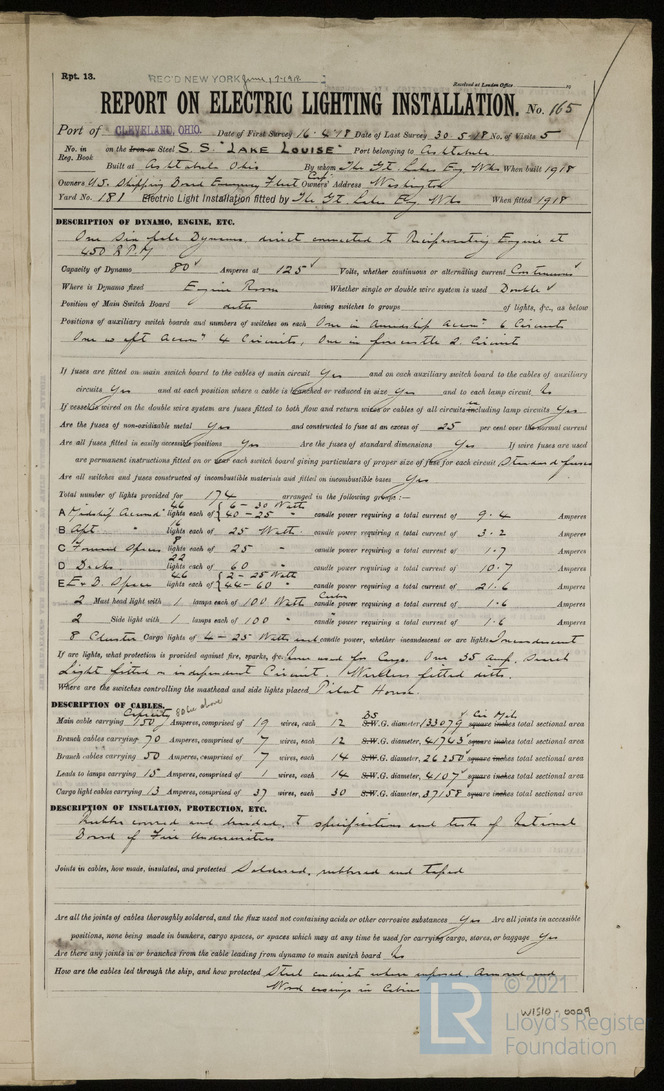 Rpt. 13.
REC'D NEW YORK June 17 1918
Received at London Office
REPORT ON ELECTRIC LIGHTING INSTALLATION. No. 165
Port of CLEVELAND, OHIO. Date of First Survey 16·4·18 Date of Last Survey 30·5·18 No. of Visits 5
No. in Reg. Book on the Iron or Steel S.S. "Lake Louise" Port belonging to Ashtabula
Built at Ashtabula Ohio By whom The Gt. Lakes Eng Wks When built 1918
Owners U.S. Shipping Board Emergency Fleet Corp. Owners' Address Washington
Yard No. 181 Electric Light Installation fitted by The Gt. Lakes Eng Wks When fitted 1918
DESCRIPTION OF DYNAMO, ENGINE, ETC.
One Six pole Dynamo, direct connected to Reciprocating Engine at
450 R.P.M
Capacity of Dynamo 80 Amperes at 125 Volts, whether continuous or alternating current Continuous
Where is Dynamo fixed Engine Room Whether single or double wire system is used Double
Position of Main Switch Board ditto having switches to groups of lights, &c., as below
Positions of auxiliary switch boards and numbers of switches on each One in Amidship Accom 6 Circuits
One in aft Accom 4 Circuits, One in forecastle 2 Circuits
If fuses are fitted on main switch board to the cables of main circuit Yes and on each auxiliary switch board to the cables of auxiliary
circuits Yes and at each position where a cable is branched or reduced in size Yes and to each lamp circuit No
If vessel is wired on the double wire system are fuses fitted to both flow and return wires or cables of all circuits including lamp circuits Yes
Are the fuses of non-oxidizable metal Yes and constructed to fuse at an excess of 25 per cent over the normal current
Are all fuses fitted in easily accessible positions Yes Are the fuses of standard dimensions Yes If wire fuses are used
are permanent instructions fitted on or near each switch board giving particulars of proper size of fuse for each circuit Standard fuses
Are all switches and fuses constructed of incombustible materials and fitted on incombustible bases Yes
Total number of lights provided for 174 arranged in the following groups:—
A Midship Accom 46 lights each of { 6 - 30 Watts 40 - 25 " candle power requiring a total current of 9·4 Amperes
B Aft " 16 lights each of 25 Watts candle power requiring a total current of 3·2 Amperes
C Forward Spaces 8 lights each of 25 " candle power requiring a total current of 1·7 Amperes
D Decks 22 lights each of 60 " candle power requiring a total current of 10·7 Amperes
E E. & B. Space 46 lights each of { 2 - 25 Watts 44 - 60 " candle power requiring a total current of 21·6 Amperes
2 Mast head light with 1 lamps each of 100 Watts candle power requiring a total current of 1·6 Amperes
2 Side light with 1 lamps each of 100 " candle power requiring a total current of 1·6 Amperes
8 Cluster Cargo lights of 4 - 25 Watts each candle power, whether incandescent or arc lights Incandescent
If arc lights, what protection is provided against fire, sparks, &c. None used for Cargo. One 35 Amp. Search
Light fitted on independent Circuit. Wireless fitted ditto.
Where are the switches controlling the masthead and side lights placed Pilot House.
DESCRIPTION OF CABLES.
Capacity
Main cable carrying 150 Amperes, comprised of 19 wires, each 12 BS S.W.G. diameter, 133079 Cir Mils square inches total sectional area
Branch cables carrying 70 Amperes, comprised of 7 wires, each 12 S.W.G. diameter, 41743 square inches total sectional area
Branch cables carrying 50 Amperes, comprised of 7 wires, each 14 S.W.G. diameter, 26250 square inches total sectional area
Leads to lamps carrying 15 Amperes, comprised of 1 wires, each 14 S.W.G. diameter, 4107 square inches total sectional area
Cargo light cables carrying 13 Amperes, comprised of 37 wires, each 30 S.W.G. diameter, 37158 square inches total sectional area
DESCRIPTION OF INSULATION, PROTECTION, ETC.
Rubber covered and braided, to specifications and tests of National
Board of Fire Underwriters
Joints in cables, how made, insulated, and protected Soldered, rubbered and taped
Are all the joints of cables thoroughly soldered, and the flux used not containing acids or other corrosive substances Yes Are all joints in accessible
positions, none being made in bunkers, cargo spaces, or spaces which may at any time be used for carrying cargo, stores, or baggage Yes
Are there any joints in or branches from the cable leading from dynamo to main switch board No
How are the cables led through the ship, and how protected Steel conduit where exposed, Armored and
Wood casings in Cabins
W1510-0009
LR
© 2021
Lloyd's Register
Foundation